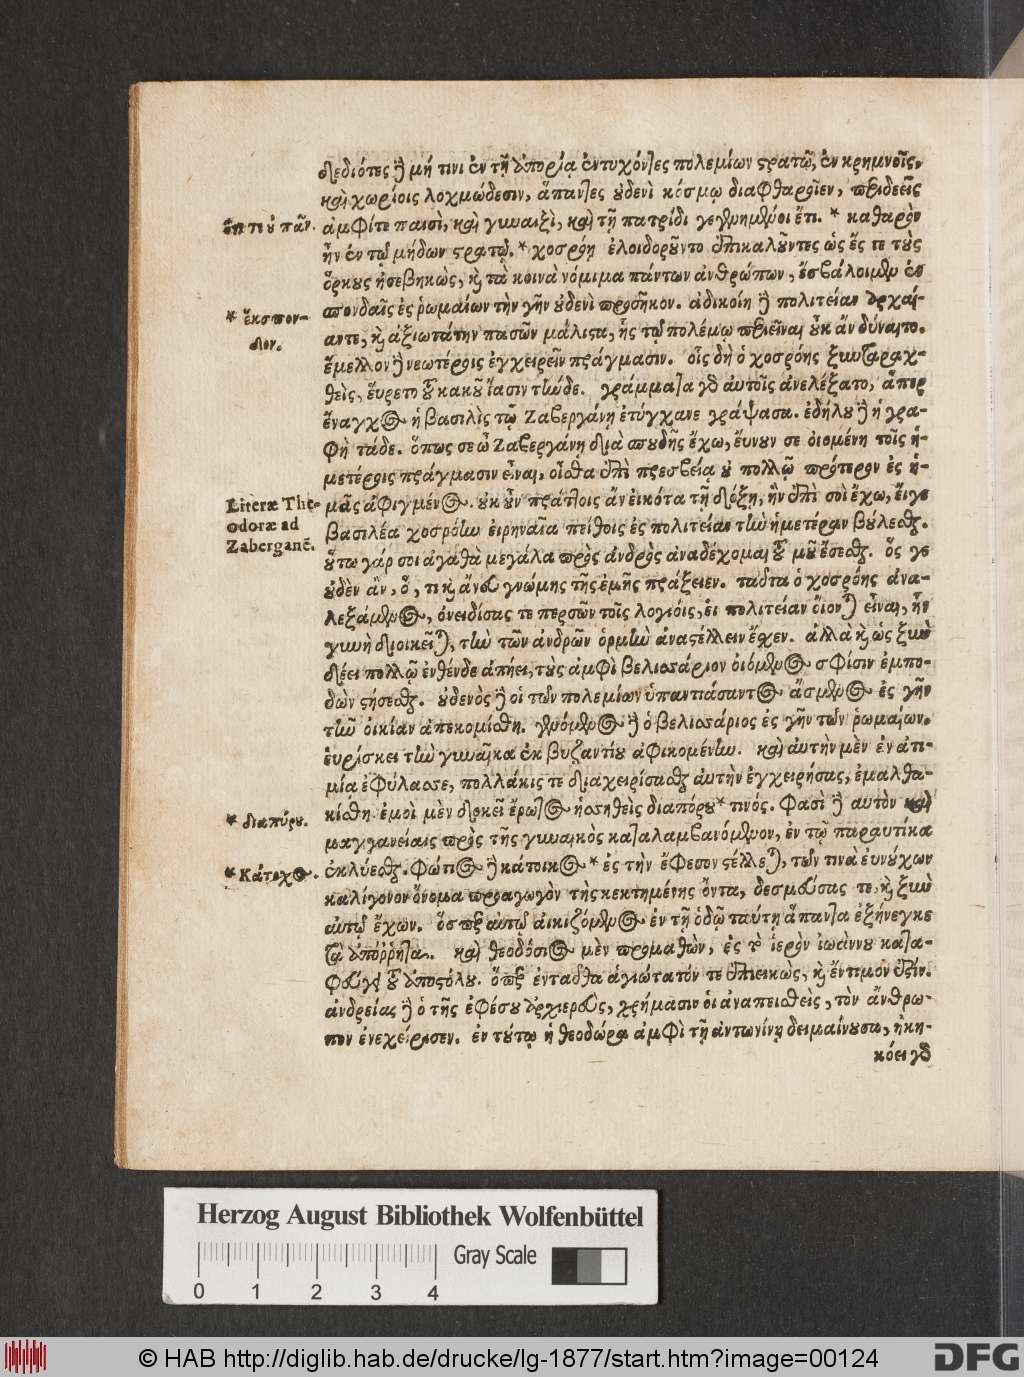 δεδιότες ἢ μή τινι ἐν τῇ ἀπορίᾳ ἐντυχόντες πολεμίων στρατῷ, ἐν κρημνοῖς,
καὶ χωρίοις λοχμώδεσιν, ἅπαντες οὐδενὶ κόσμῳ διαφθαρεῖεν, περιδεεῖς
ἀμφί τε παισὶ, καὶ γυναιξὶ, καὶ τῇ πατρίδι γεγενημένοι ἔτι. * καθαρὸν
ἦν ἐν τῷ μήδων στρατῷ. * χοσρόῃ ἐλοιδοροῦντο ἐπικαλοῦντες ὡς ἔς τε τοὺς
ὅρκους ἠσεβηκὼς, καὶ τὰ κοινὰ νόμιμα πάντων ἀνθρώπων, ἐσβάλοι μὲν ἐν
σπονδαῖς ἐς ῥωμαίων τὴν γῆν οὐδενὶ προσῆκον. ἀδικοίη δὲ πολιτείαν ἀρχαί-
* ἔκσπον-
δον.
αντε, καὶ ἀξιωτάτην πασῶν μάλιστα, ἧς τῷ πολέμῳ περιεῖναι οὐκ ἂν δύναιτο.
ἔμελλον δὲ νεωτέροις ἐγχειρεῖν πράγμασιν. οἷς δὴ ὁ χοσρόης ξυνταραχ-
θεὶς, εὕρετο τοῦ κακοῦ ἴασιν τήνδε. γράμματα γὰρ αὐτοῖς ἀνελέξατο, ἅπερ
ἔναγχος ἡ βασιλὶς τῷ Ζαβεργάνῃ ἐτύγχανε γράψασα. ἐδήλου δὲ ἡ γρα-
φὴ τάδε. ὅπως σε ὦ Ζαβεργάνη διὰ σπουδῆς ἔχω, εὔνουν σε οἰομένη τοῖς ἡ-
μετέροις πράγμασιν εἶναι, οἶσθα ἐπὶ πρεσβείᾳ οὐ πολλῷ πρότερον ἐς ἡ-
Literæ The-
odoræ ad
Zaberganē.
μᾶς ἀφιγμένος. οὐκοῦν πράττοις ἂν εἰκότα τῇ δόξῃ, ἣν ἐπὶ σοὶ ἔχω, εἴγε
βασιλέα χοσρόην εἰρηναῖα πείθοις ἐς πολιτείαν τὴν ἡμετέραν βούλεσθαι.
οὕτω γάρ σοι ἀγαθὰ μεγάλα πρὸς ἀνδρὸς ἀναδέχομαι τοῦ μοῦ ἔσεσθαι. ὅς γε
οὐδὲν ἂν, ὅ, τι καὶ ἄνευ γνώμης τῆς ἐμῆς πράξειεν. ταῦτα ὁ χοσρόης ἀνα-
λεξάμενος, ὀνειδίσας τε περσῶν τοῖς λογίοις, εἰ πολιτείαν οἴονται εἶναι, ἣν
γυνὴ διοικεῖται, τὴν τῶν ἀνδρῶν ὁρμὴν ἀναστέλλειν ἔσχεν. ἀλλὰ καὶ ὡς ξὺν
δέει πολλῷ ἐνθένδε ἀπῄει, τοὺς ἀμφὶ βελισάριον οἰόμενος σφίσιν ἐμπο-
δὼν στήσεσθαι. οὐδενὸς δὲ οἱ τῶν πολεμίων ὑπαντιάσαντος ἄσμενος ἐς γῆν
τὴν οἰκίαν ἀπεκομίσθη. γενόμενος δὲ ὁ βελισάριος ἐς γῆν τῶν ῥωμαίων.
εὑρίσκει τὴν γυναῖκα ἐκ βυζαντίου ἀφικομένην. καὶ αὐτὴν μὲν ἐν ἀτι-
μίᾳ ἐφύλασσε, πολλάκις τε διαχειρίσασθαι αὐτὴν ἐγχειρήσας, ἐμαλθα-
κίσθη· ἐμοὶ μὲν δοκεῖ ἔρωτος ἡσσηθεὶς διαπόρου * τινός. Φασὶ δὲ αὐτὸν καὶ
* διαπύρου.
μαγγανείαις πρὸς τῆς γυναικὸς καταλαμβανόμενον, ἐν τῷ παραυτίκα
ἐκλύεσθαι. Φώτιος δὲ κάτοικος * ἐς τὴν ἔφεσον στέλλεται, τῶν τινὰ εὐνούχων
* Κάτοχος.
καλίγονον ὄνομα προαγωγὸν τῆς κεκτημένης ὄντα, δεσμεύσας τε, καὶ ξὺν
αὐτῷ ἔχων. ὅσπερ αὐτῷ αἰκιζόμενος ἐν τῇ ὁδῷ ταύτῃ ἅπαντα ἐξήνεγκε
τὰ ἀπόῤῥητα. καὶ θεοδόσιος μὲν προμαθὼν, ἐς τὸ ἱερὸν ἰωάννου κατα-
φεύγει τοῦ ἀποστόλου. ὅπερ ἐνταῦθα ἁγιώτατόν τε ἐπιεικῶς, καὶ ἔντιμον ἐστίν.
ἀνδρείας δὲ ὁ τῆς ἐφέσου ἀρχιερεὺς, χρήμασιν οἱ ἀναπεισθεὶς, τὸν ἄνθρω-
πον ἐνεχείρισεν. ἐν τούτῳ ἡ θεοδώρα ἀμφὶ τῇ ἀντωνίνῃ δειμαίνουσα, ἠκη-
κόει γὰρ
Herzog August Bibliothek Wolfenbüttel
Gray Scale
0 1 2 3 4
© HAB http://diglib.hab.de/drucke/lg-1877/start.htm?image=00124
DFG